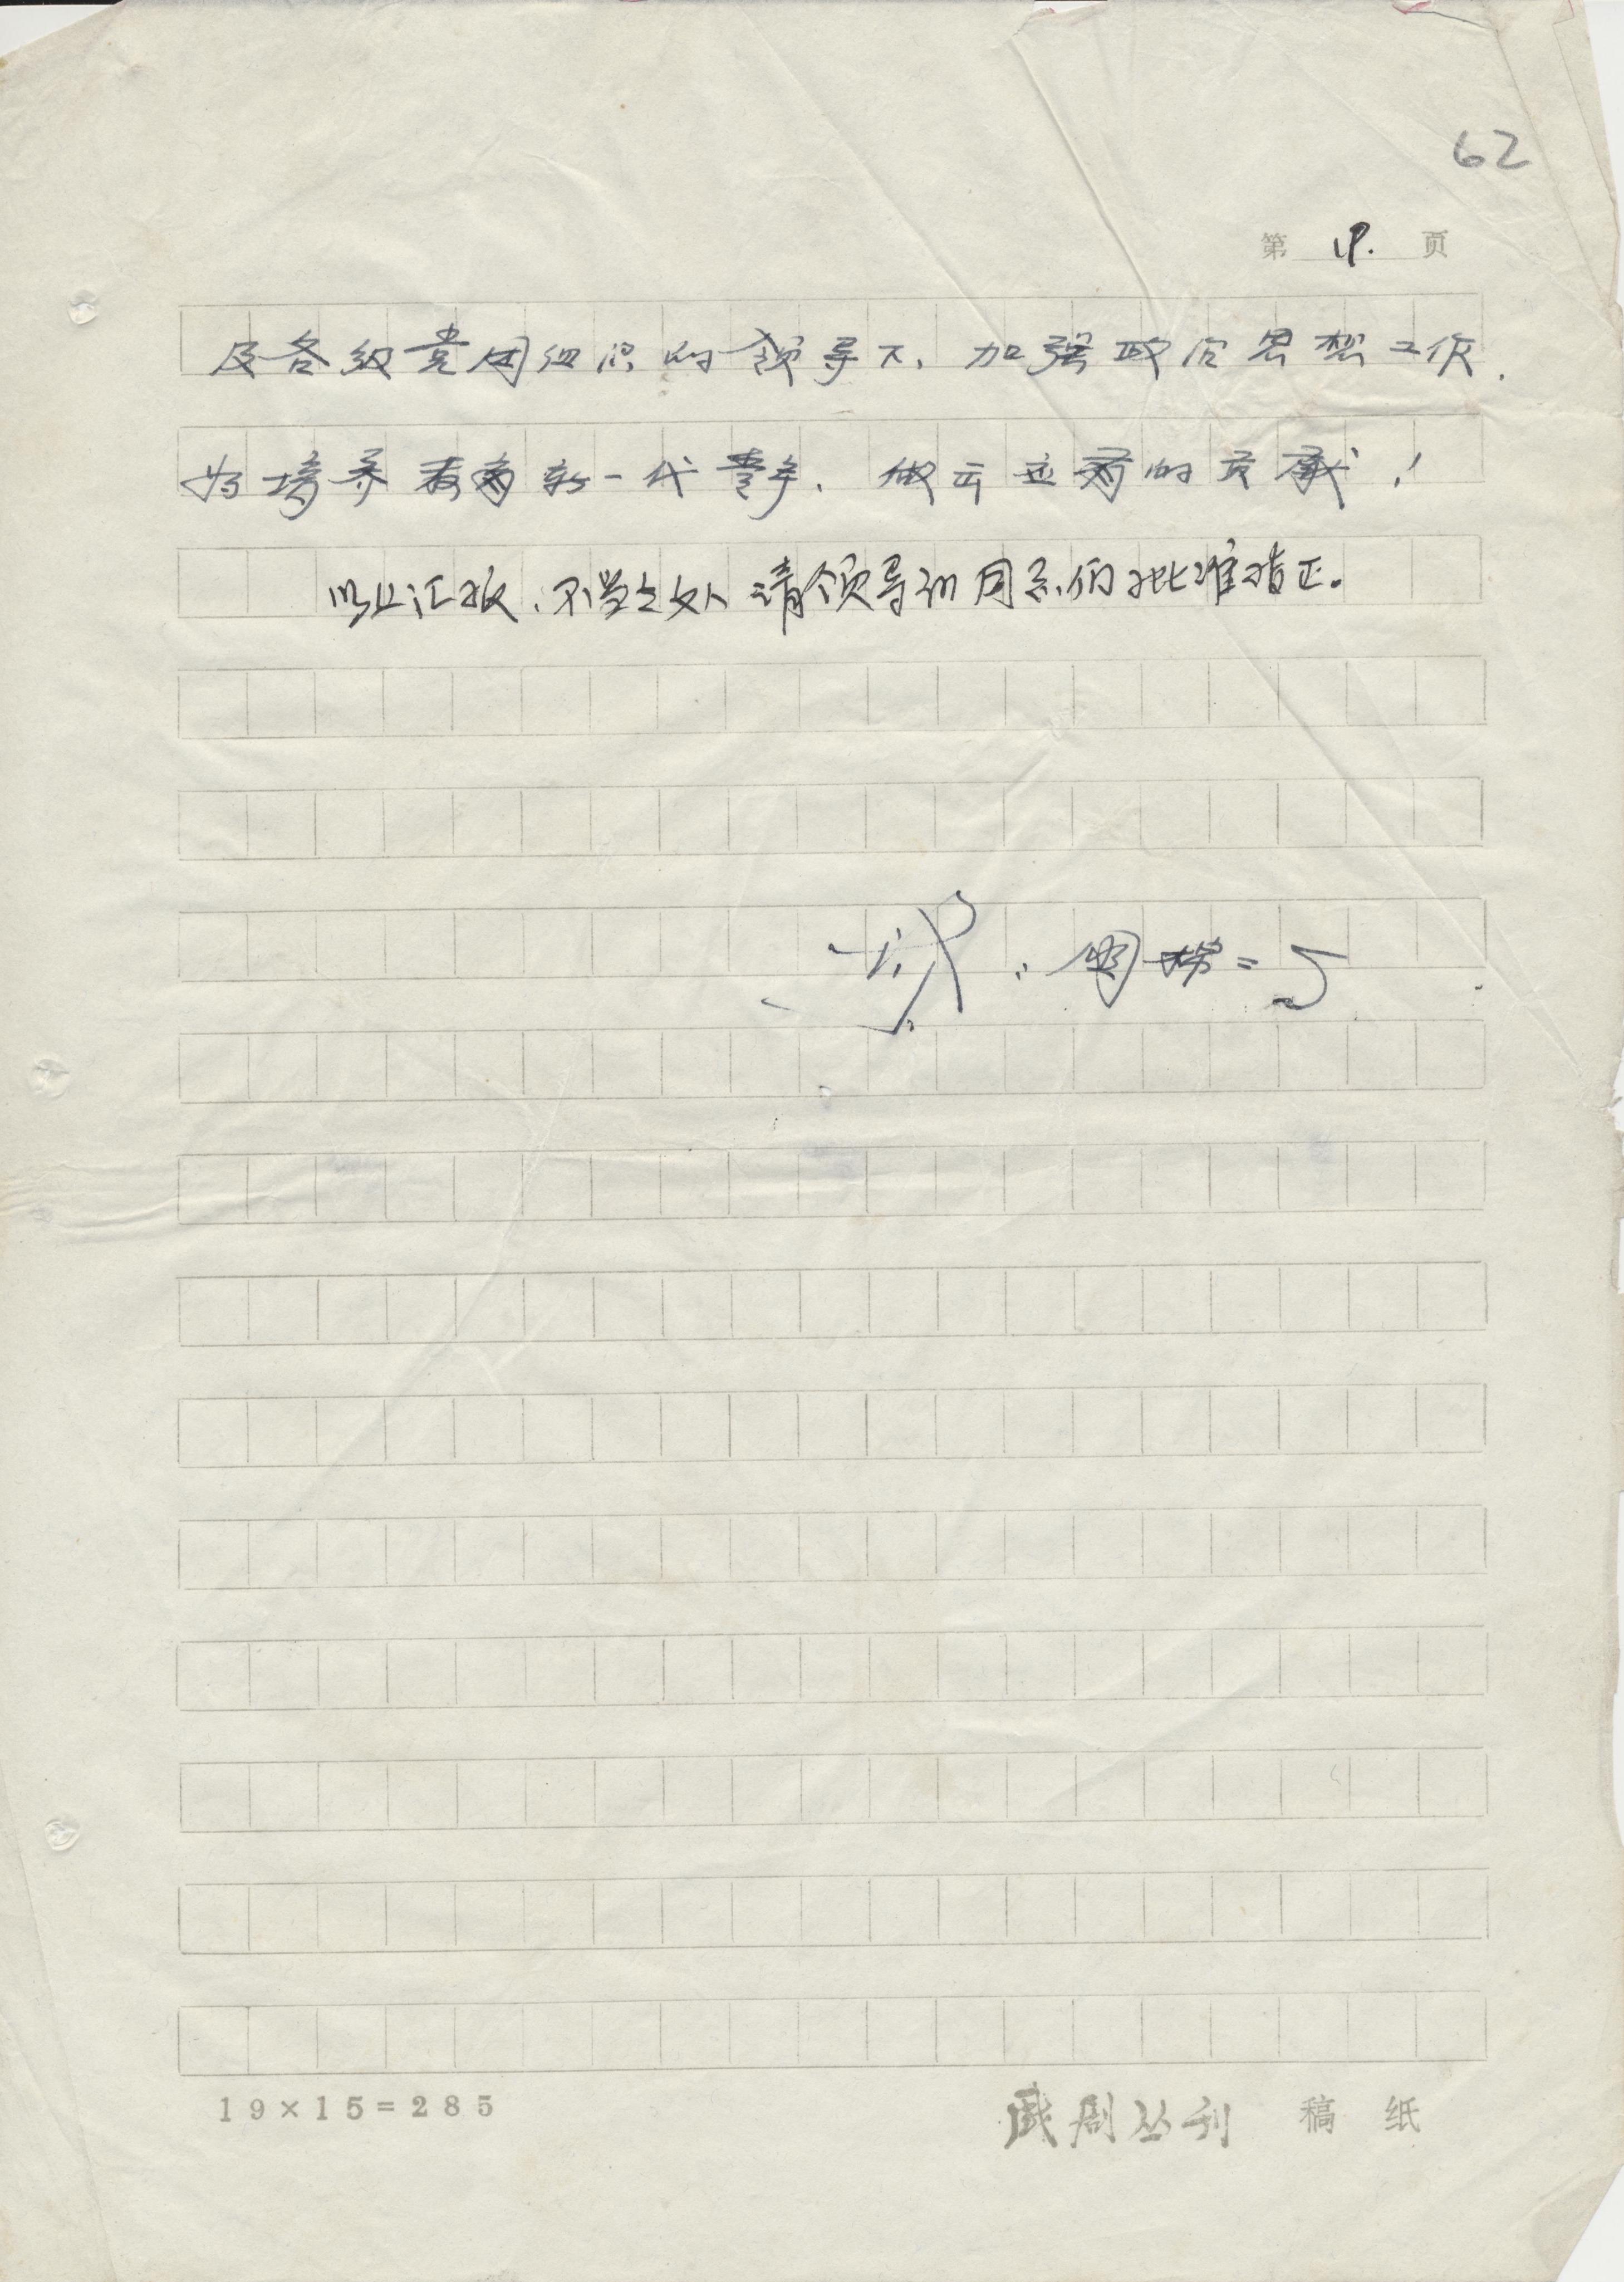 62
第 19. 页
及各级党团组织的领导下、加强政治思想工作.
为培养教育新一代青年、做出应有的贡献！
以上汇报、不当之处请领导和同志们批准指正。
19×15=285
戏剧丛刊 稿 纸